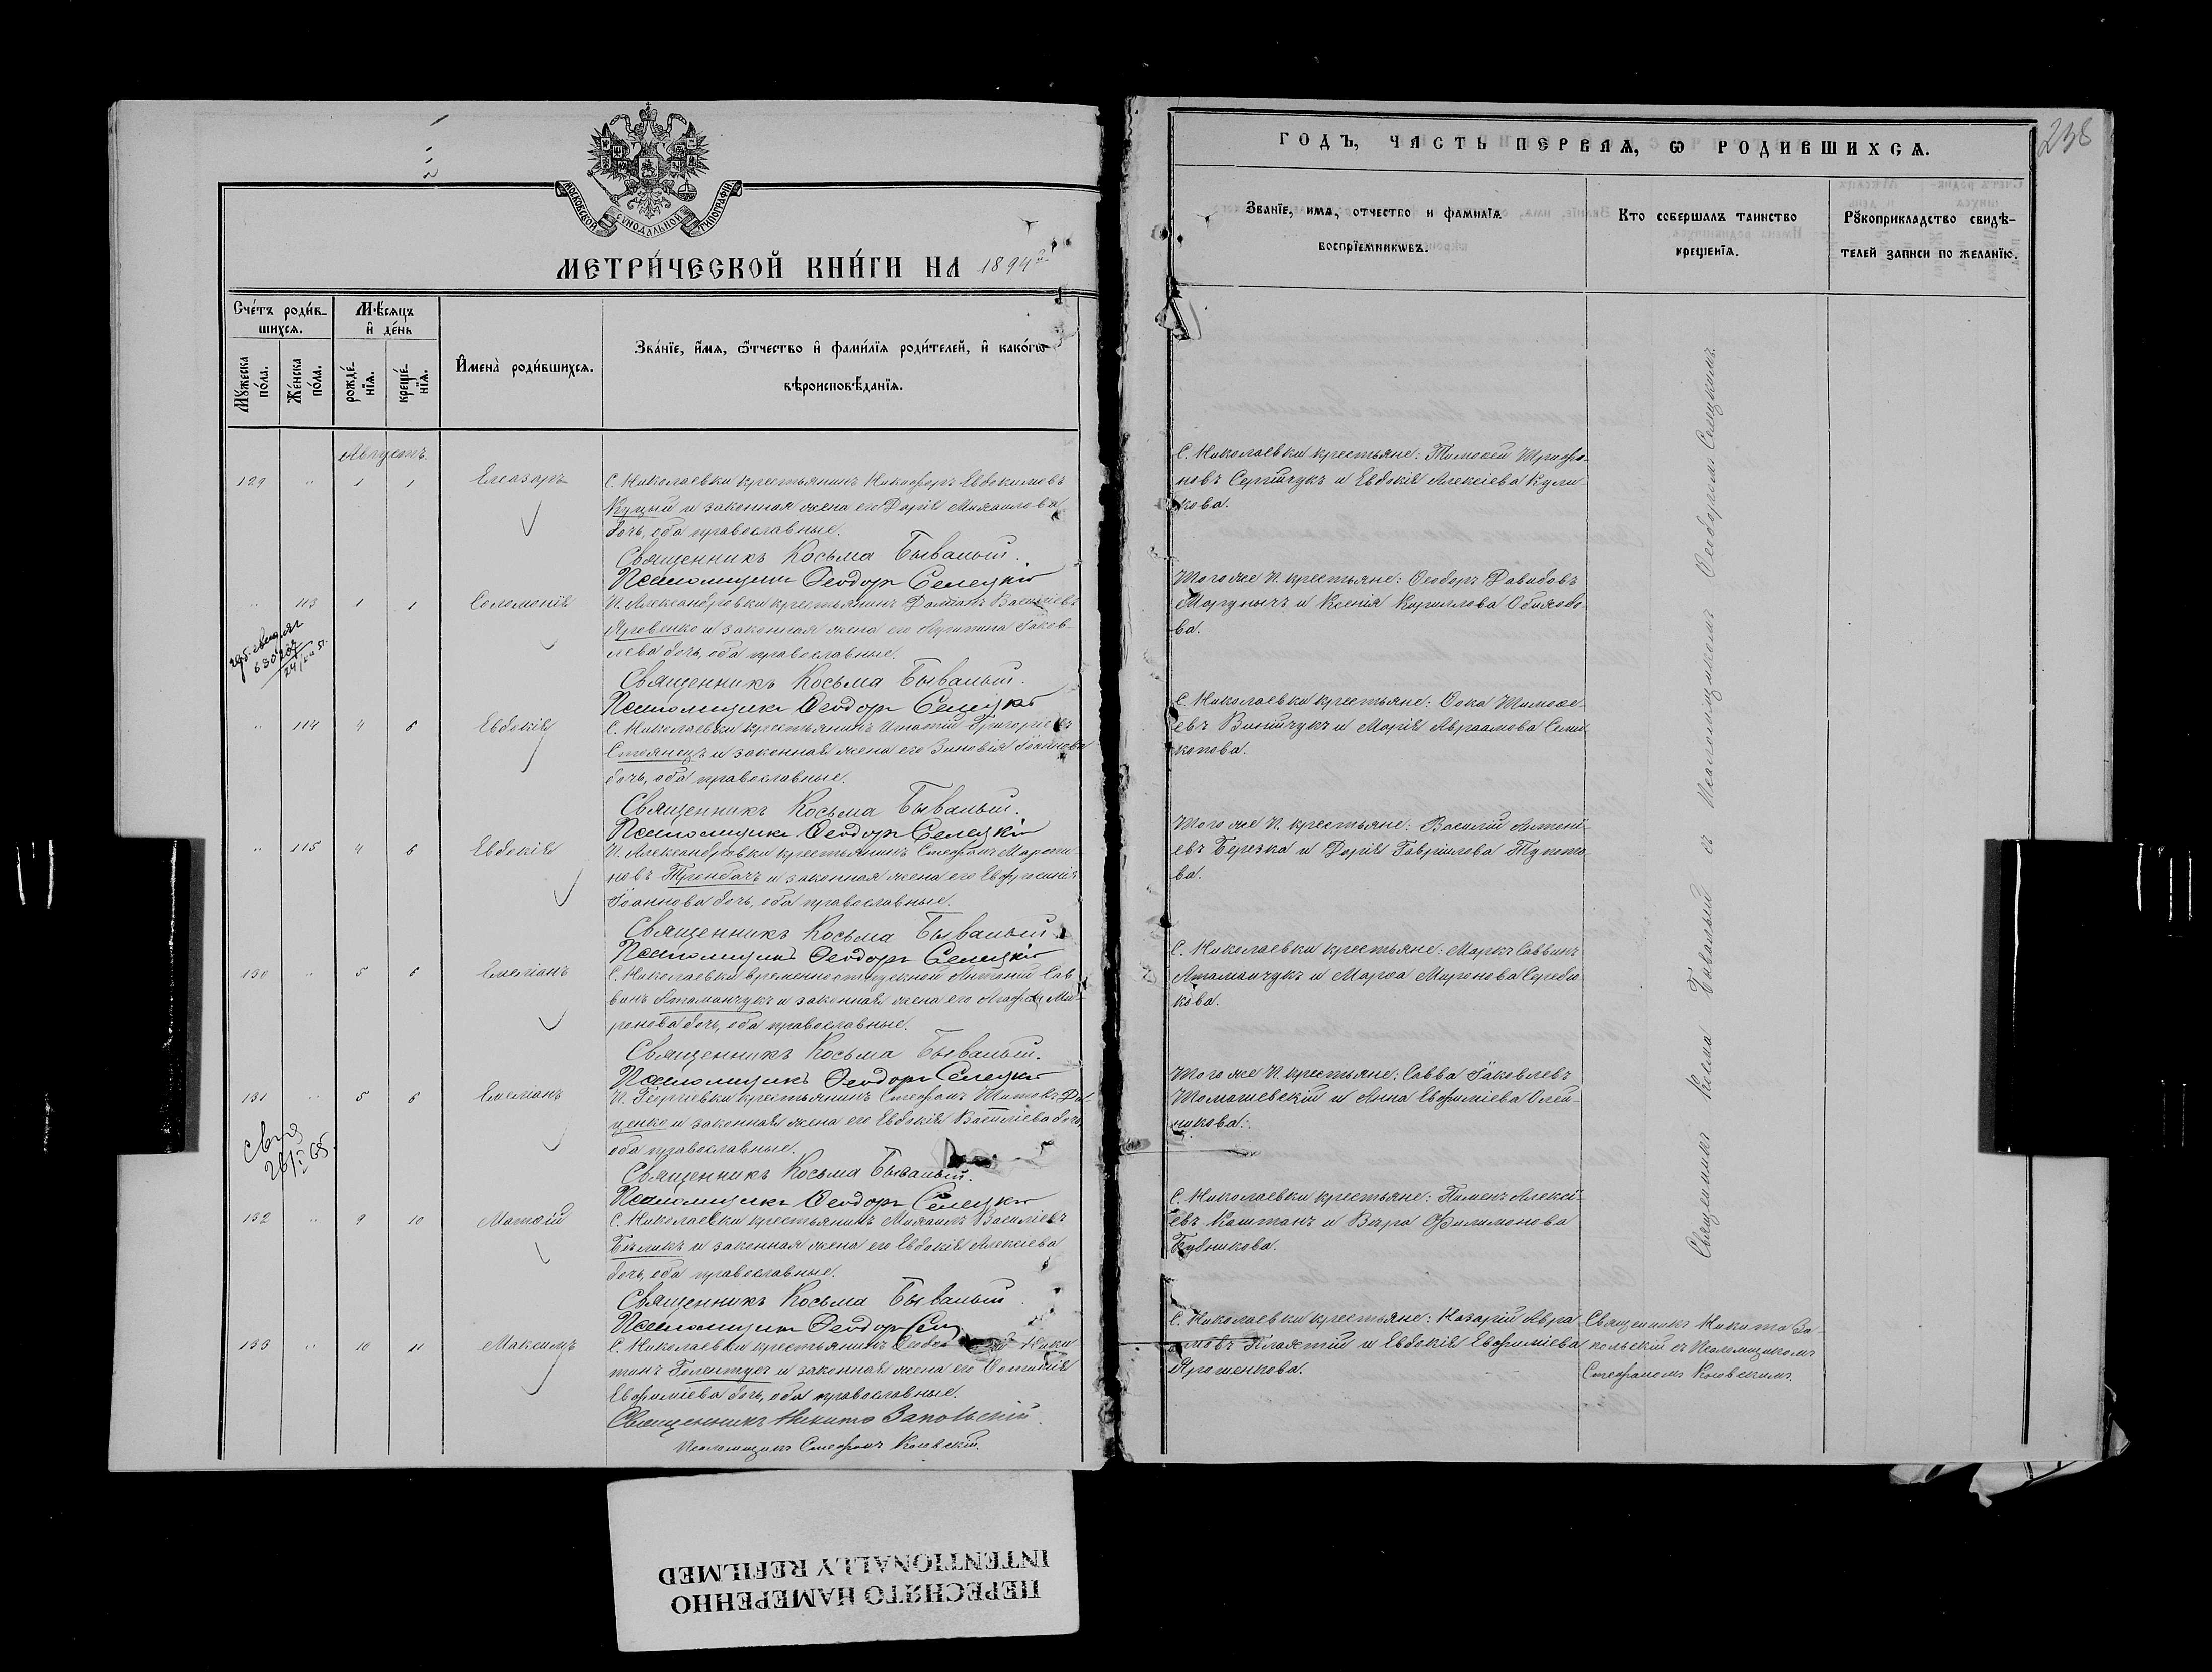 МОСКОВСКОЙ СУНОДАЛЬНОЙ ТИПОГРАФІИ
МЕТРИ́ЧЕСКОЙ КНИ́ГИ НА 1894 г.
Сче́тъ роди́в-
шихсѧ.
Мꙋ́жеска
по́ла.
Же́нска
по́ла.
Мѣ́сяцъ
и҆ де́нь
рожде́-
нїѧ.
креще́-
нїѧ.
И҆мена̀ роди́вшихсѧ.
Зва́нїе, и҆́мѧ, ѻ҆́тчество и҆ фами́лїѧ роди́телей, и҆ како́гѡ
вѣроисповѣ́данїѧ.
Августъ.
129 " 1 1 Елеазаръ
С. Николаевки крестьянинъ Никифоръ Евдокимовъ
Куцый и законная жена его Дарія Михаилова
дочь, оба православные.
Священникъ Косьма Бывалый.
Псаломщикъ Ѳеодоръ Селецкій
" 113 1 1 Соломонія
П. Александровки крестьянинъ Даміанъ Василіевъ
Яровенко и законная жена его Агрипина Іаков-
лева дочь, оба православные.
Священникъ Косьма Бывалый.
Псаломщикъ Ѳеодоръ Селецкій
" 114 4 6 Евдокія
С. Николаевки крестьянинъ Игнатій Григорьевъ
Стоянецъ и законная жена его Зиновія Іоаннова
дочь, оба православные.
Священникъ Косьма Бывалый.
Псаломщикъ Ѳеодоръ Селецкій
" 115 4 6 Евдокія
П. Александровки крестьянинъ Стефанъ Марти-
новъ Тромбачъ и законная жена его Евфросинія
Іоаннова дочь, оба православные.
Священникъ Косьма Бывалый
Псаломщикъ Ѳеодоръ Селецкій
130 " 5 6 Емеліанъ
С. Николаевки временноотпускной Антоній Сав-
винъ Атаманчукъ и законная жена его Агафія Ми-
ронова дочь, оба православные.
Священникъ Косьма Бывалый.
Псаломщикъ Ѳеодоръ Селецкій
131 " 5 6 Емеліанъ
П. Георгіевки крестьянинъ Стефанъ Титовъ
ценко и законная жена его Евдокія Василіева дочь,
оба православные.
Священникъ Косьма Бывалый.
Псаломщикъ Ѳеодоръ Селецкій
132 " 9 10 Матѳій
С. Николаевки крестьянинъ Михаилъ Василіевъ
Бѣликъ и законная жена его Евдокія Алексіева
дочь, оба православные.
Священникъ Косьма Бывалый
Псаломщикъ Ѳеодоръ
133 " 10 11 Максимъ
С. Николаевки крестьянинъ Ники-
тинъ и законная жена его Фотинія
Евфиміева дочь, оба православные.
Священникъ Никита Запольскій.
Псаломщикъ Стефанъ Косовскій.
ГОДЪ, ЧАСТЬ ПЕРВАѦ, Ѡ РОДИВШИХСѦ.
238
Званїе, имѧ, отчество и фамилїѧ
воспрїемникѡвъ.
Кто совершалъ таинство
крещенїѧ.
Рꙋкоприкладство свидѣ-
телей записи по желанїю.
С. Николаевки крестьяне: Тимоѳей Трифо-
новъ Сергійчукъ и Евдокія Алексіева Кули-
кова.
Того же П. крестьяне: Ѳеодоръ Давидовъ
и Ксенія Кириллова
ва.
С. Николаевки крестьяне: Ѳока Тимоѳе-
евъ Винійчукъ и Марія Авраамова Семи-
копова.
Того же П. крестьяне: Василій Антоні-
евъ Березка и Дарія Гавріилова
ва.
С. Николаевки крестьяне: Маркъ Саввинъ
Атаманчукъ и Марѳа Миронова
кова.
Того же П. крестьяне: Савва Іаковлевъ
Томашевскій и Анна Евфиміева Олей-
никова.
С. Николаевки крестьяне: Пименъ Алексі-
евъ Каштанъ и Вѣра Филимонова
Бубникова.
С. Николаевки крестьяне: Назарій Авра-
амовъ и Евдокія Евфиміева
Ярошенкова.
Священникъ Косма Бывалый съ Псаломщикомъ Ѳеодоромъ Селецкимъ.
Священникъ Никита За-
польскій съ Псаломщикомъ
Стефаномъ Косовскимъ.
ПЕРЕСНЯТО НАМЕРЕННО
INTENTIONALLY REFILMED